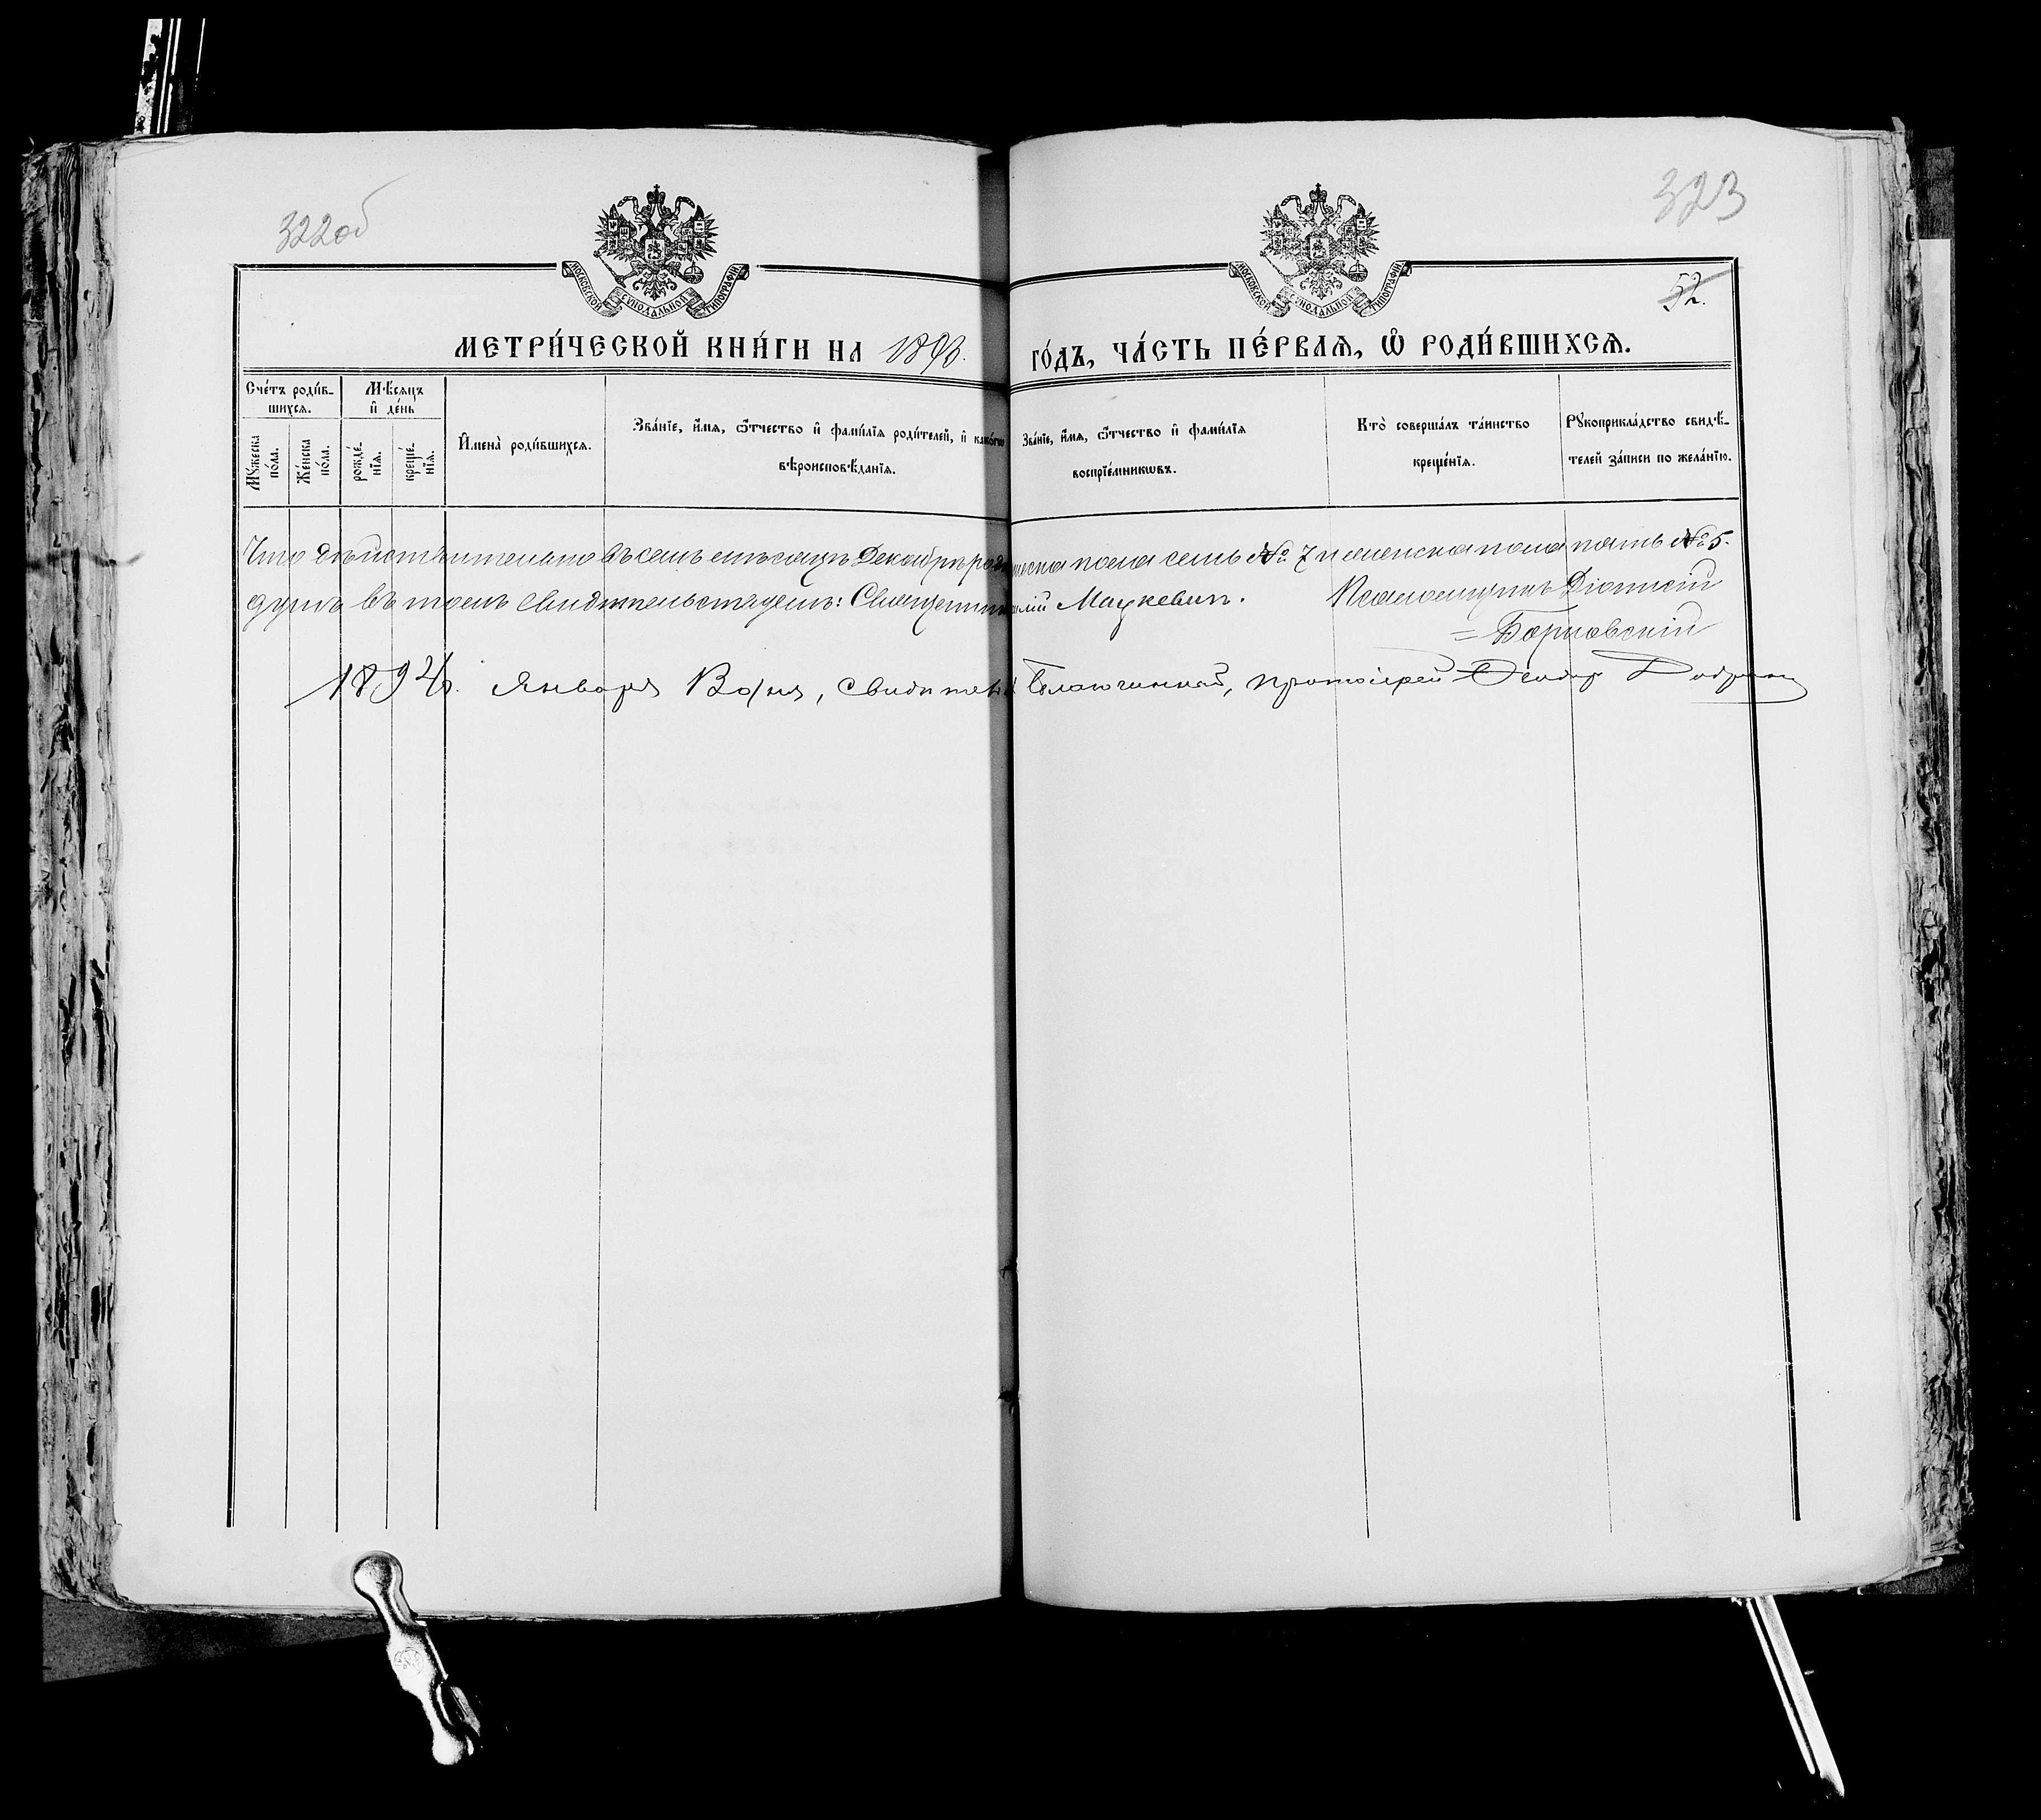 322об
323
52.
МОСКОВСКОЙ СѴНОДАЛЬНОЙ ТИПОГРАФІИ
МОСКОВСКОЙ СѴНОДАЛЬНОЙ ТИПОГРАФІИ
МЕТРИ́ЧЕСКОЙ КНИ́ГИ НА 1893. ГО́ДЪ, ЧА́СТЬ ПЕ́РВАѦ, Ѽ РОДИ́ВШИХСѦ.
Сче́тъ роди́в-
шихсѧ.
Мѣ́сѧцъ
и҆ де́нь
Мꙋ́жеска
по́ла.
Же́нска
по́ла.
рожде́-
нїѧ.
креще́-
нїѧ.
И҆мена̀ роди́вшихсѧ.
Зва́нїе, и҆́мѧ, ѻ҆́тчество и҆ фами́лїѧ роди́телей, и҆ како́гѡ
вѣроисповѣ́данїѧ.
Зва́нїе, и҆́мѧ, ѻ҆́тчество и҆ фами́лїѧ
воспрїе́мникѡвъ.
Кто̀ соверша́лъ та́инство
креще́нїѧ.
Рꙋкоприкла́дство свидѣ́-
телей за́писи по жела́нїю.
Что дѣйствительно въ семъ мѣсяцѣ Декабрѣ пола семь № 7 и женска пола пять № 5.
душъ въ томъ свидѣтельствуемъ: Священникъ Мацкевичъ. Псаломщикъ Діонисій
=Борковскій
1894 г. Января дня, Благочинный, протоіерей Ѳеодоръ